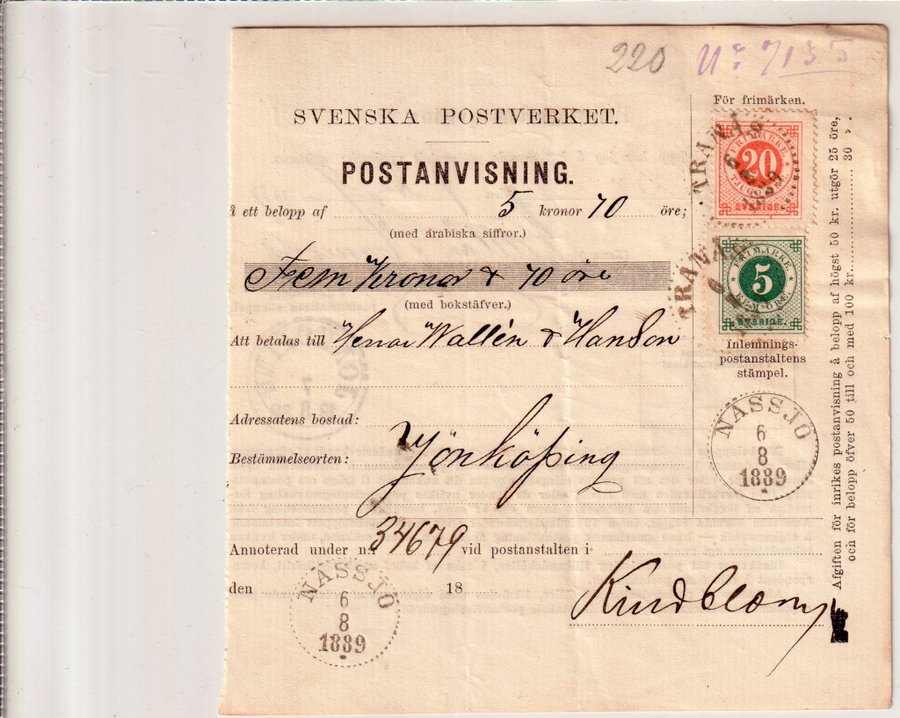 220 Nº 7135
SVENSKA POSTVERKET.
POSTANVISNING.
å ett belopp af 5 kronor 70 öre;
(med arabiska siffror.)
Fem Kronor & 70 öre
(med bokstäfver.)
Att betalas till Herrar Wallén & Hanson
Adressatens bostad:
Bestämmelseorten: Jönköping
Annoterad under n:r 34679 vid postanstalten i
den 18
NÄSSJÖ
6
8
1889
För frimärken.
TRANÅ
6
1889
FRIMÄRKE.
20
TJUGO
SVERIGE.
TRANÅ
6
FRIMÄRKE.
5
FEM ÖRE.
SVERIGE.
Inlemnings-
postanstaltens
stämpel.
NÄSSJÖ
6
8
1889
Afgiften för inrikes postanvisning å belopp af högst 50 kr. utgör 25 öre,
och för belopp öfver 50 till och med 100 kr. 30 ».